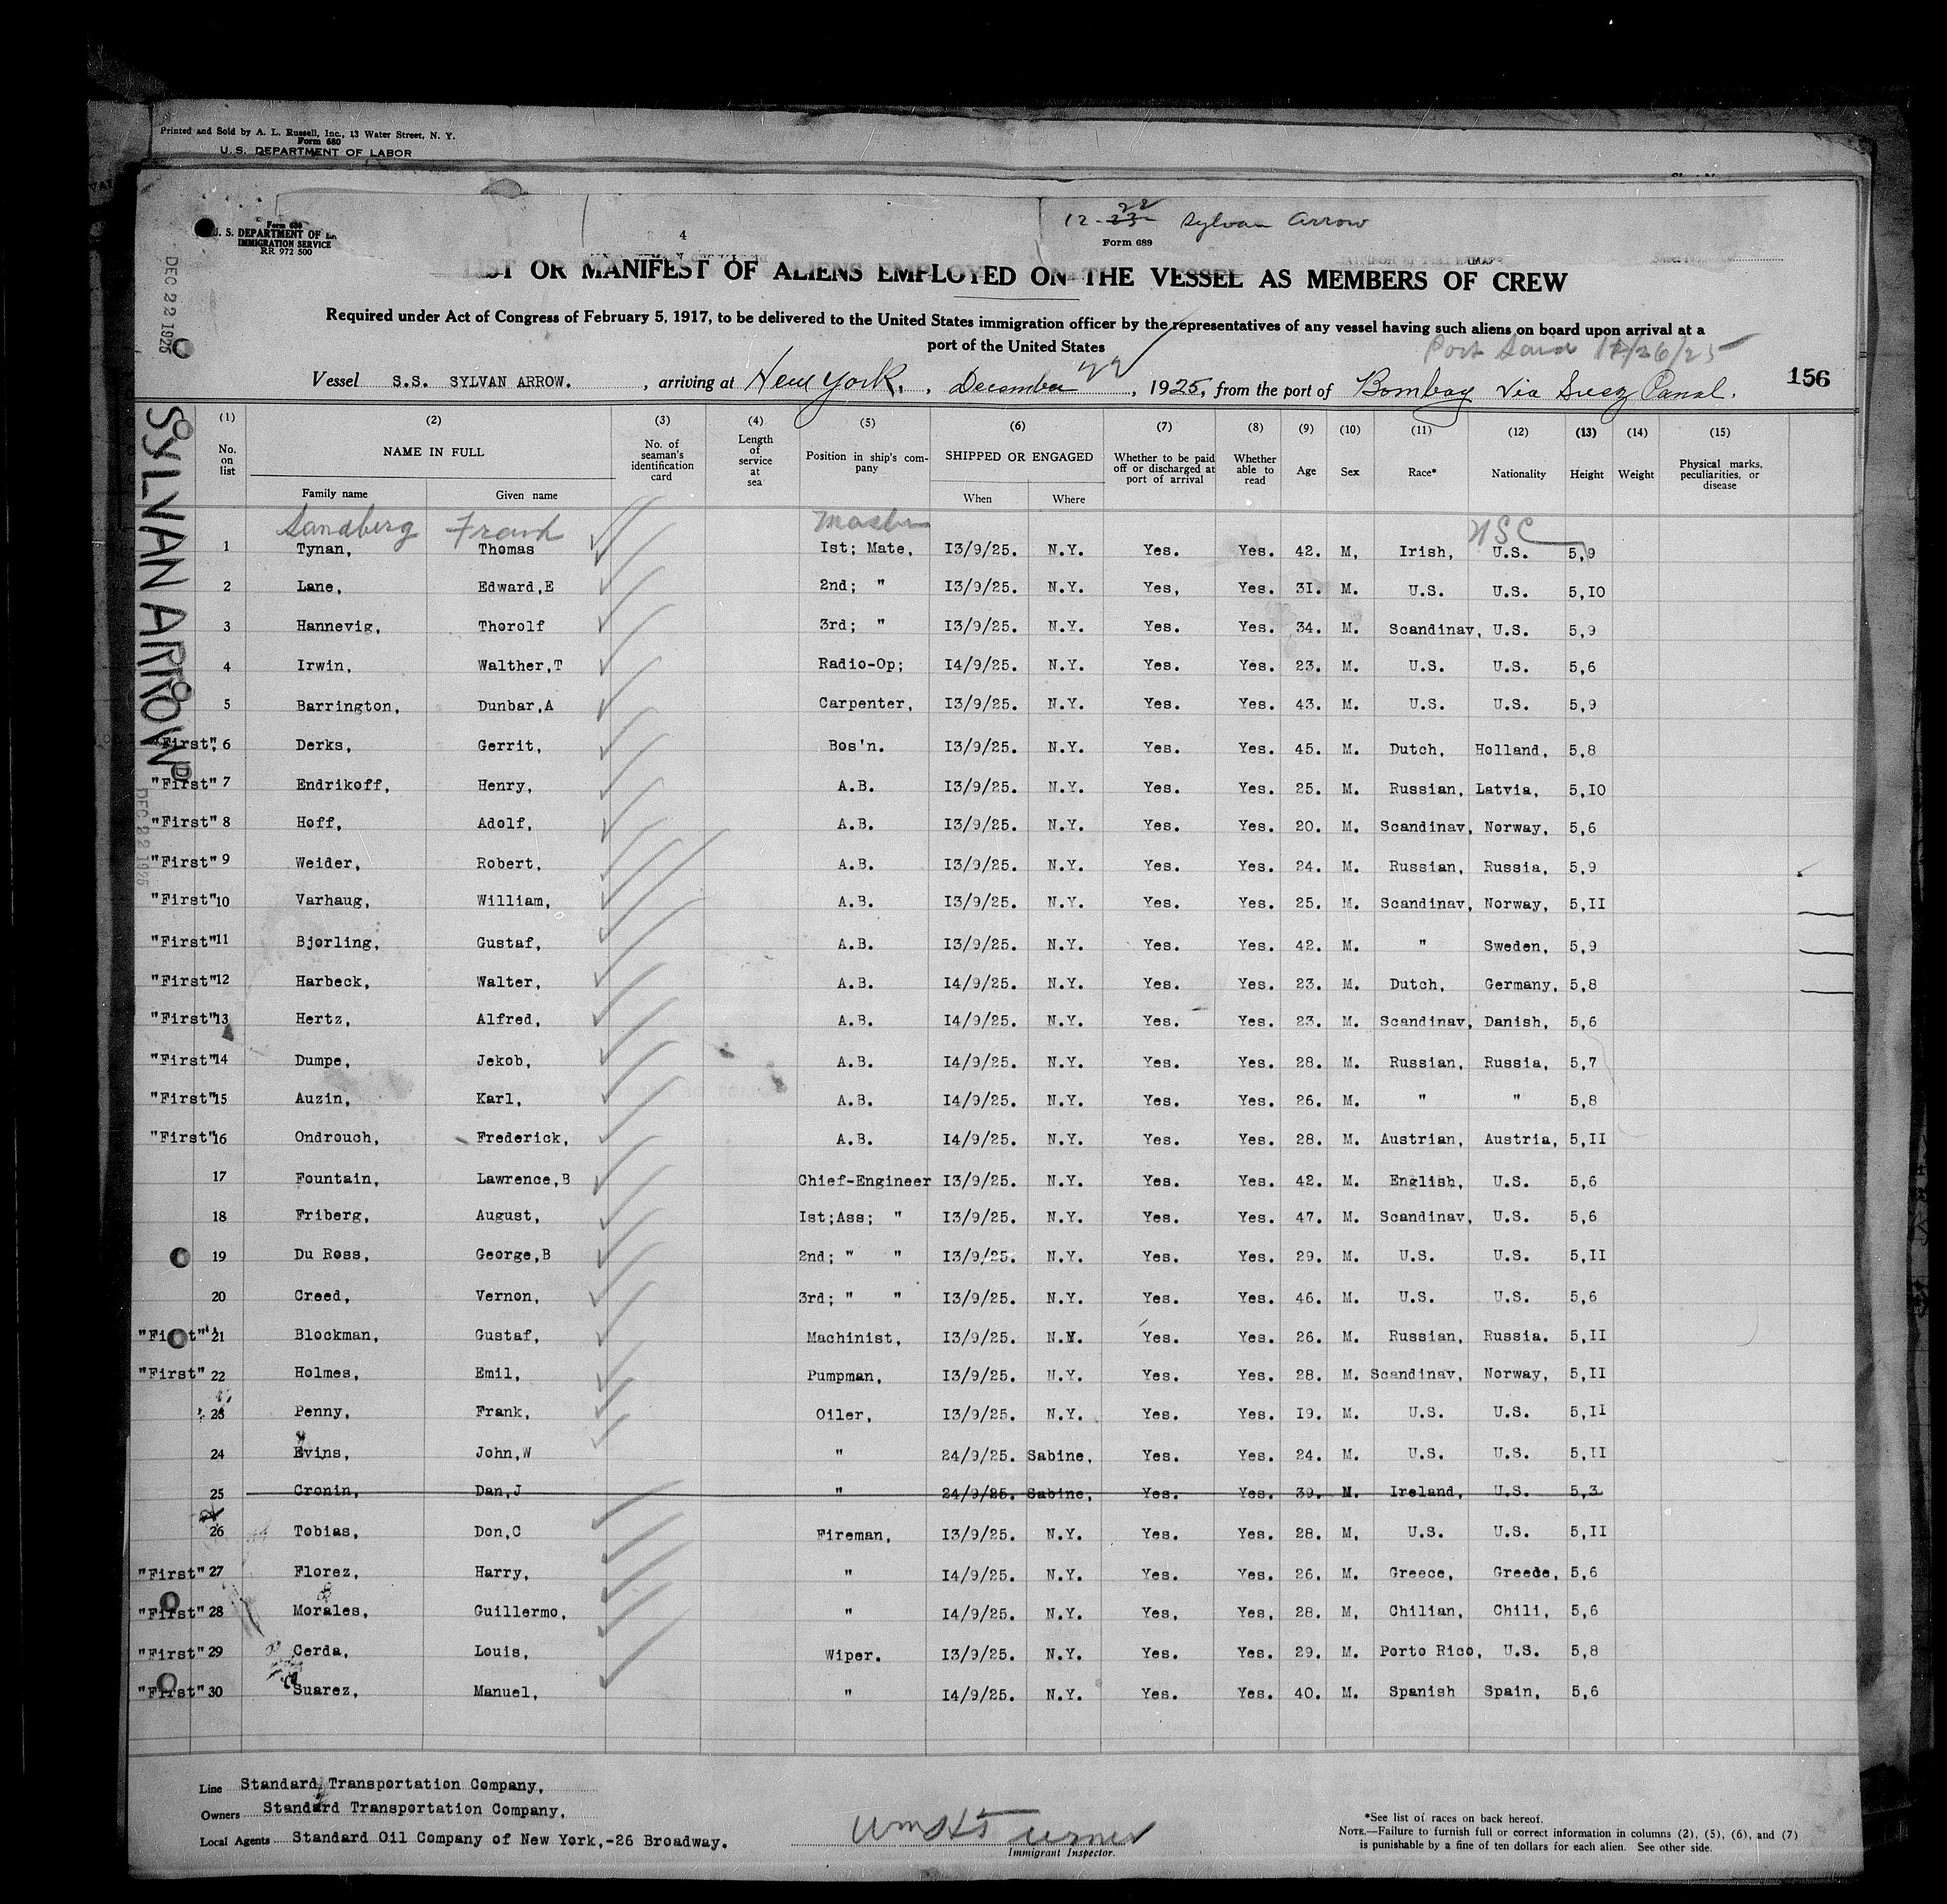 Printed and Sold by A. L. Russell, Inc., 13 Water Street, N. Y.
Form 680
U. S. DEPARTMENT OF LABOR
12-23 22 Sylvan Arrow
Form 680
U. S. DEPARTMENT OF
IMMIGRATION SERVICE
RR 972 500
4
Form 689
DEC 22 1925
LIST OR MANIFEST OF ALIENS EMPLOYED ON THE VESSEL AS MEMBERS OF CREW
Required under Act of Congress of February 5, 1917, to be delivered to the United States immigration officer by the representatives of any vessel having such aliens on board upon arrival at a
port of the United States
Port Said 11/26/25
Vessel S.S. SYLVAN ARROW. , arriving at New York. , December 22 , 1925, from the port of Bombay via Suez Canal.
156
SYLVAN ARROW
DEC 22 1925
(1) (2) (3) (4) (5) (6) (7) (8) (9) (10) (11) (12) (13) (14) (15)
No. on list NAME IN FULL Family name Given name No. of seaman's identification card Length of service at sea Position in ship's company SHIPPED OR ENGAGED When Where Whether to be paid off or discharged at port of arrival Whether able to read Age Sex Race* Nationality Height Weight Physical marks, peculiarities, or disease
Sandberg Frank Master USC
1 Tynan, Thomas Ist; Mate, I3/9/25. N.Y. Yes. Yes. 42. M, Irish, U.S. 5,9
2 Lane, Edward,E 2nd; " I3/9/25. N.Y. Yes, Yes. 3I. M. U.S. U.S. 5,IO
3 Hannevig, Thorolf 3rd; " I3/9/25. N.Y. Yes. Yes. 34. M. Scandinav, U.S. 5,9
4 Irwin, Walther,T Radio-Op; I4/9/25. N.Y. Yes. Yes. 23. M. U.S. U.S. 5,6
5 Barrington, Dunbar,A Carpenter, I3/9/25. N.Y. Yes. Yes. 43. M. U.S. U.S. 5,9
"First", 6 Derks, Gerrit, Bos'n. I3/9/25. N.Y. Yes. Yes. 45. M. Dutch, Holland, 5,8
"First" 7 Endrikoff, Henry, A.B. I3/9/25. N.Y. Yes. Yes. 25. M. Russian, Latvia, 5,IO
"First" 8 Hoff, Adolf, A.B. I3/9/25. N.Y. Yes. Yes. 20. M. Scandinav, Norway, 5,6
"First" 9 Weider, Robert, A.B. I3/9/25. N.Y. Yes. Yes. 24. M. Russian, Russia, 5,9
"First" 10 Varhaug, William, A.B. I3/9/25. N.Y. Yes. Yes. 25. M. Scandinav, Norway, 5,II
"First" 11 Bjorling, Gustaf, A.B. I3/9/25. N.Y. Yes. Yes. 42. M. " Sweden, 5,9
"First" 12 Harbeck, Walter, A.B. I4/9/25. N.Y. Yes. Yes. 23. M. Dutch, Germany, 5,8
"First" 13 Hertz, Alfred, A.B. I4/9/25. N.Y. Yes. Yes. 23. M. Scandinav, Danish, 5,6
"First" 14 Dumpe, Jekob, A.B. I4/9/25. N.Y. Yes. Yes. 28. M. Russian, Russia, 5,7
"First" 15 Auzin, Karl, A.B. I4/9/25. N.Y. Yes. Yes. 26. M. " " 5,8
"First" 16 Ondrouch, Frederick, A.B. I4/9/25. N.Y. Yes. Yes. 28. M. Austrian, Austria, 5,II
17 Fountain, Lawrence,B Chief-Engineer I3/9/25. N.Y. Yes. Yes. 42. M. English, U.S. 5,6
18 Friberg, August, Ist;Ass; " I3/9/25. N.Y. Yes. Yes. 47. M. Scandinav, U.S. 5,6
19 Du Ross, George,B 2nd; " " I3/9/25. N.Y. Yes. Yes. 29. M. U.S. U.S. 5,II
20 Creed, Vernon, 3rd; " " I3/9/25. N.Y. Yes. Yes. 46. M. U.S. U.S. 5,6
"First" 21 Blockman, Gustaf, Machinist, I3/9/25. N.Y. Yes. Yes. 26. M. Russian, Russia. 5,II
"First" 22 Holmes, Emil, Pumpman, I3/9/25. N.Y. Yes. Yes. 28. M. Scandinav, Norway, 5,II
23 Penny, Frank, Oiler, I3/9/25. N.Y. Yes. Yes. I9. M. U.S. U.S. 5,II
24 Evins, John,W " 24/9/25. Sabine, Yes. Yes. 24. M. U.S. U.S. 5,II
25 Cronin, Dan,J " 24/9/25. Sabine, Yes. Yes. 39. M. Ireland, U.S. 5,3
26 Tobias, Don,C Fireman, I3/9/25. N.Y. Yes. Yes. 28. M, U.S. U.S. 5,II
"First" 27 Florez, Harry, " I4/9/25. N.Y. Yes. Yes. 26, M. Greece, Greede, 5,6
"First" 28 Morales, Guillermo, " I4/9/25. N.Y. Yes, Yes, 28. M, Chilian, Chili, 5,6
"First" 29 Cerda, Louis, Wiper. I3/9/25. N.Y. Yes. Yes. 29. M. Porto Rico, U.S. 5,8
"First" 30 Suarez, Manuel, " I4/9/25. N.Y. Yes. Yes. 40. M. Spanish Spain, 5,6
Line Standard Transportation Company,
Owners Standard Transportation Company,
Local Agents Standard Oil Company of New York,-26 Broadway.
Immigrant Inspector.
*See list of races on back hereof.
NOTE.—Failure to furnish full or correct information in columns (2), (5), (6), and (7)
is punishable by a fine of ten dollars for each alien. See other side.